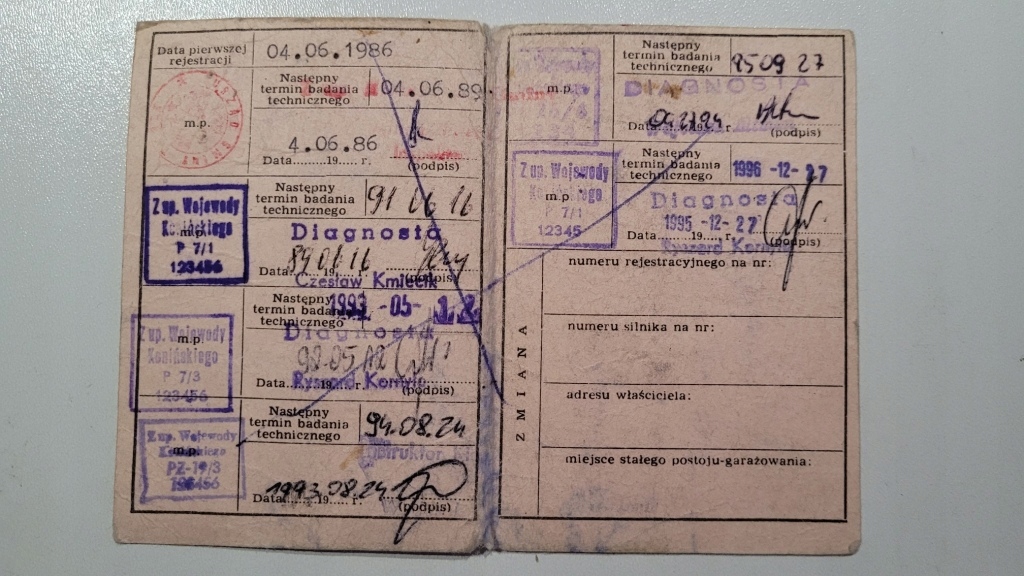 Data pierwszej
rejestracji
04.06.1986
Następny
termin badania
technicznego
04.06.89
m.p.
4.06.86
Data......19.... r.
(podpis)
Następny
termin badania
technicznego
91 06 16
Z up. Wojewody
Konińskiego
m.p.
P 7/1
123456
Diagnosta
Data 89.06.16
(podpis)
Czesław Kmiecik
Następny
termin badania
technicznego
1993 -05- 12
Z up. Wojewody
m.p.
Konińskiego
P 7/3
123456
Diagnosta
Data......19....
Ryszard
(podpis)
Następny
termin badania
technicznego
94.08.24
Z up. Wojewody
m.p.
PZ-19/3
Data 1993.08.24 r.
(podpis)
Następny
termin badania
technicznego
95 09 27
m.p.
DIAGNOSTA
Data......19.... r.
(podpis)
Następny
termin badania
technicznego
1996 -12- 27
Z up. Wojewody
Konińskiego
m.p.
P 7/1
12345
Diagnosta
1995 -12- 27
Data......19.... r.
(podpis)
Ryszard
ZMIANA
numeru rejestracyjnego na nr:
numeru silnika na nr:
adresu właściciela:
miejsce stałego postoju-garażowania: